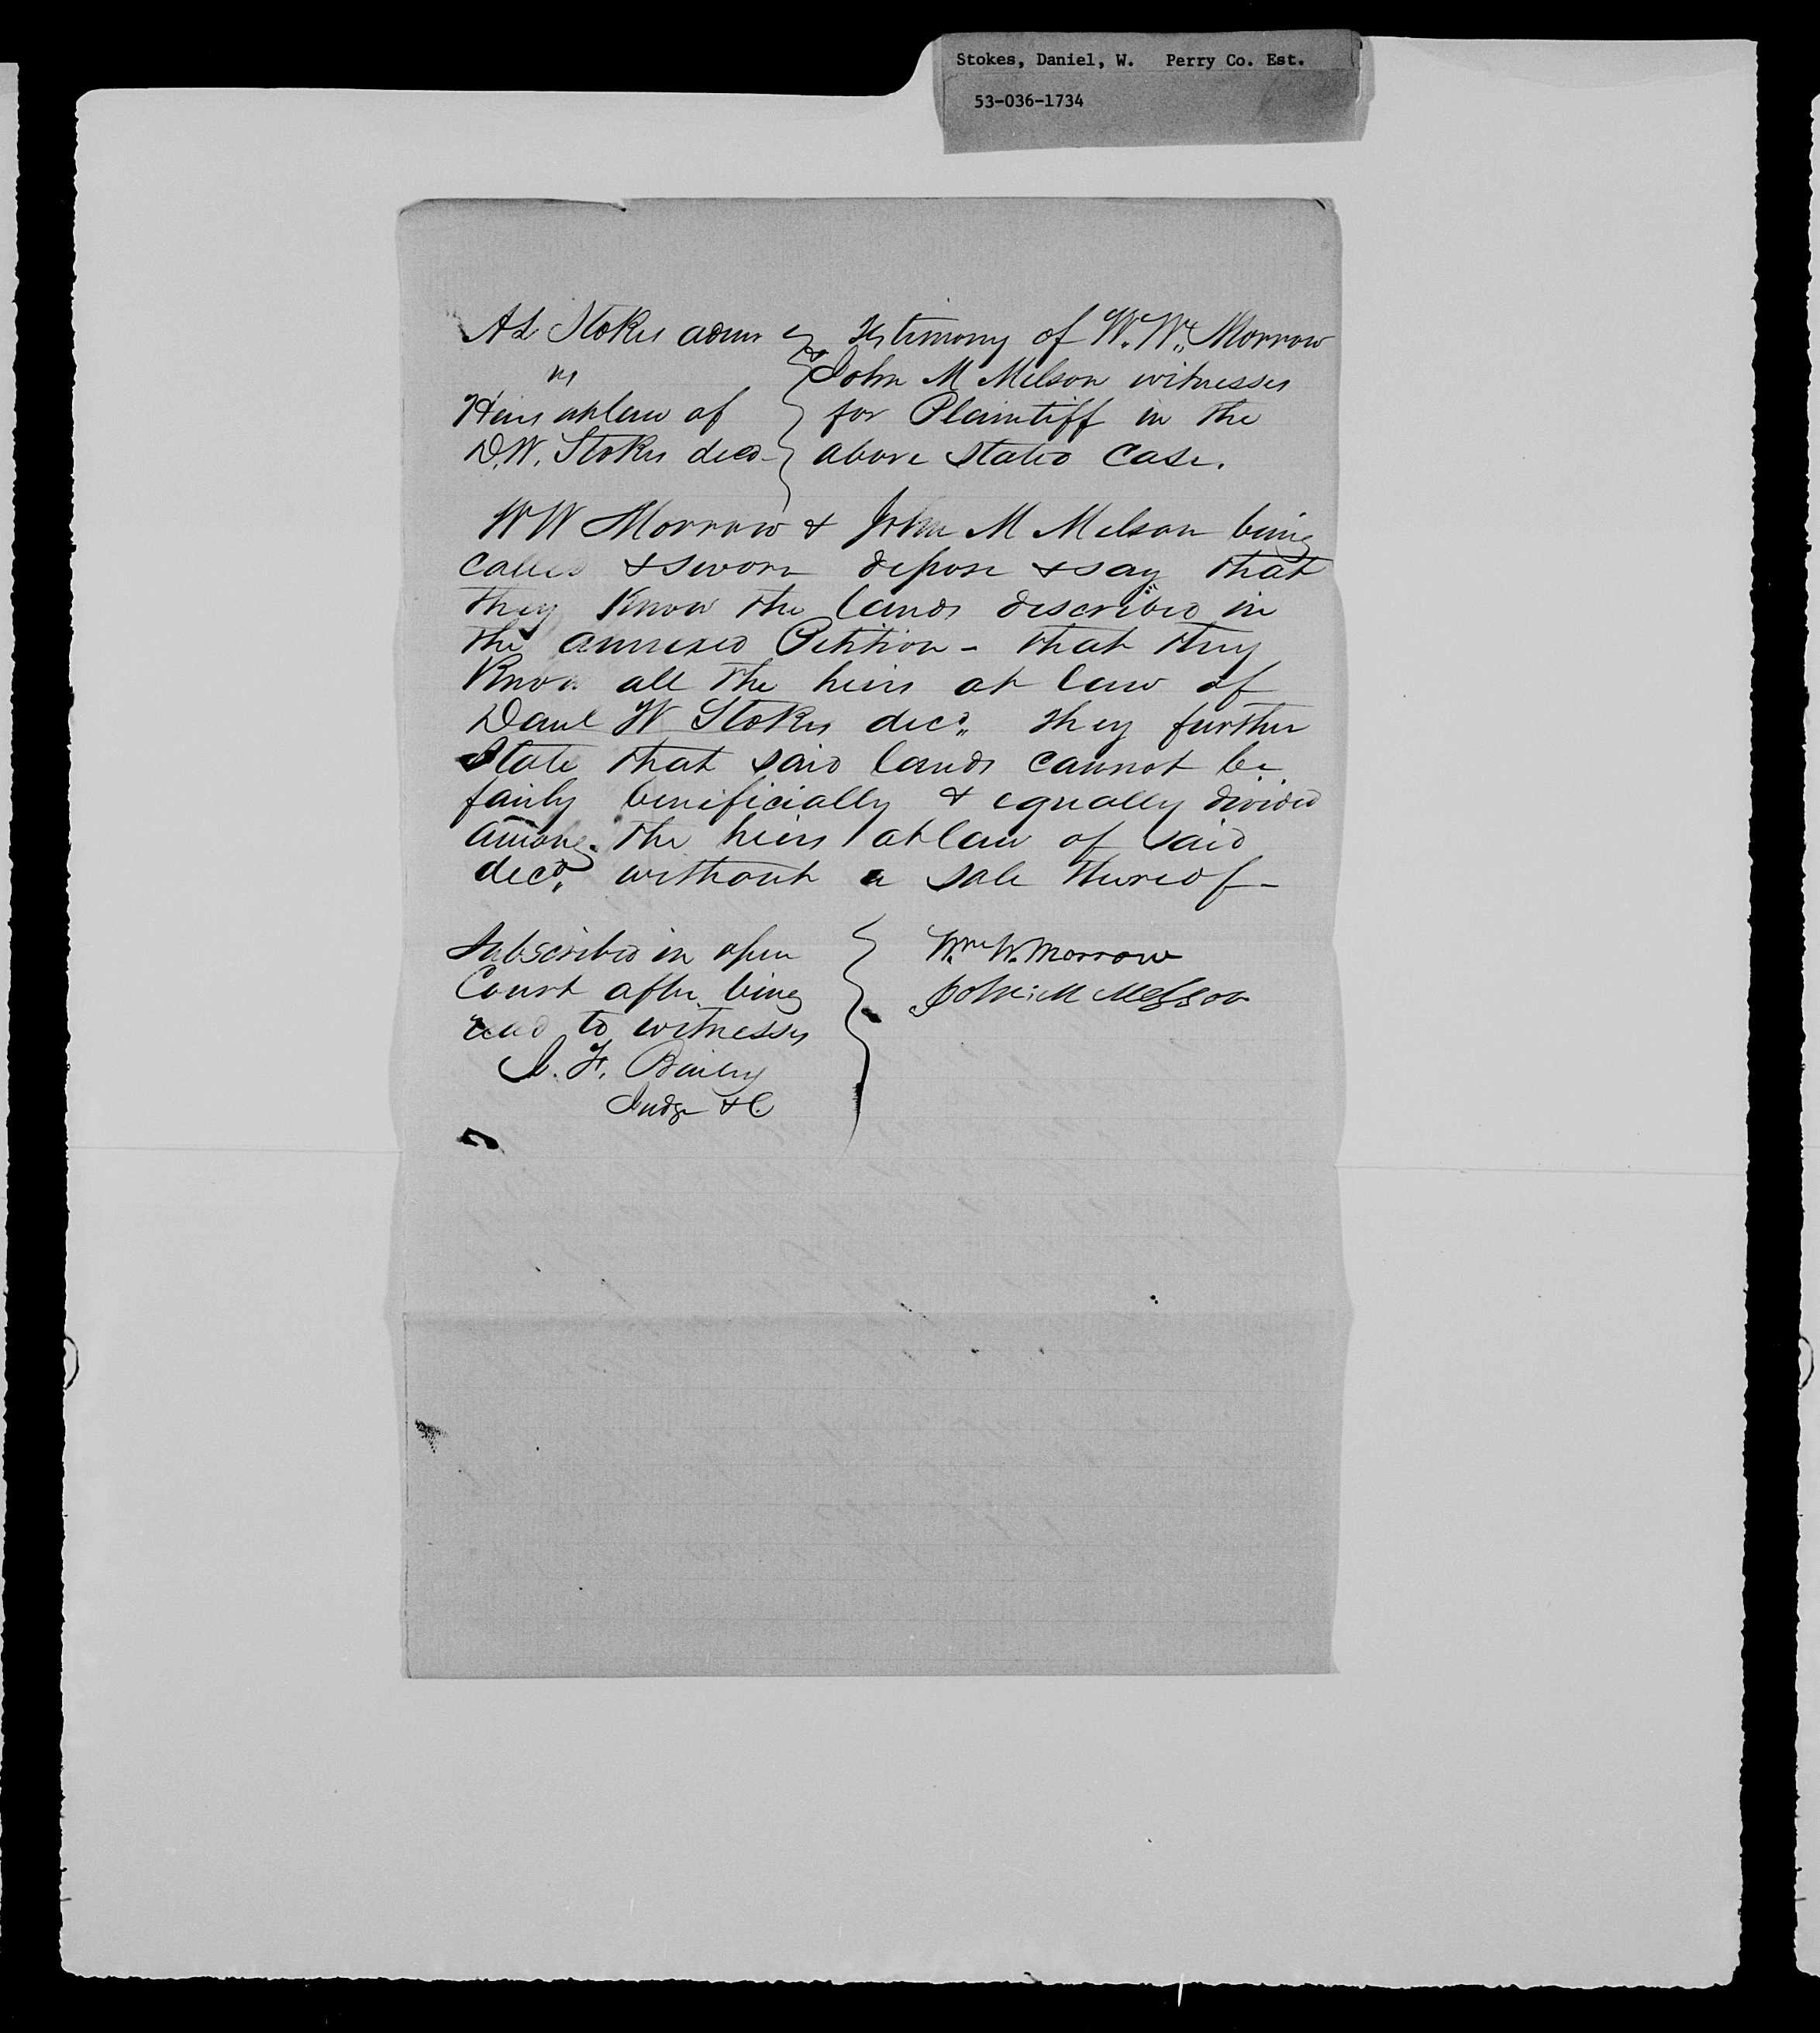 Stokes, Daniel, W. Perry Co. Est.
53-036-1734
AL Stokes admr
vs
Heirs at law of
D.W. Stokes decd
Testimony of W. W. Morrow
& John M Melson witnesses
for Plaintiff in the
above stated case.
W W Morrow & John M Melson being
called & sworn depose & say that
they know the lands described in
the annexed Petition - that they
know all the heirs at law of
Danl W Stokes decd. They further
state that said lands cannot be
fairly beneficially & equally divided
among the heirs at law of said
decd. without a sale thereof -
Subscribed in open
Court after being
read to witnesses
J. F. Bailey
Judge &C.
Wm W. Morrow
John M Melson